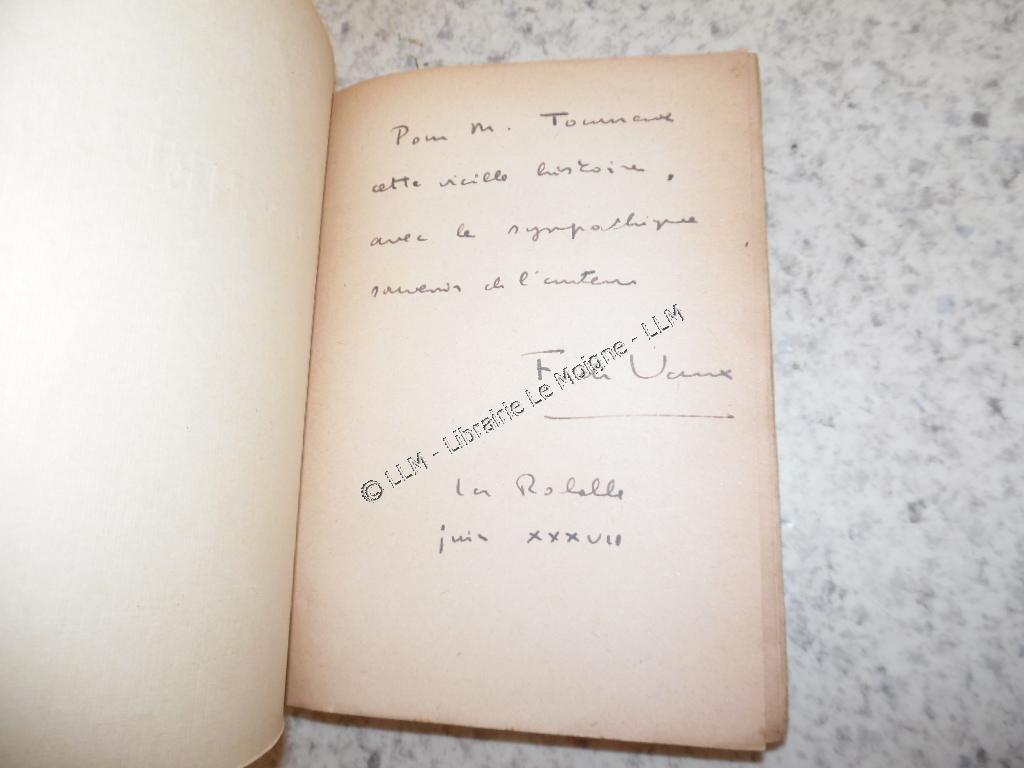 Pour M. Tournaux
cette vieille histoire,
avec le sympathique
souvenir de l'auteur
Vaux
La
juin XXXVII
© LLM - Librairie Le Moigne - LLM